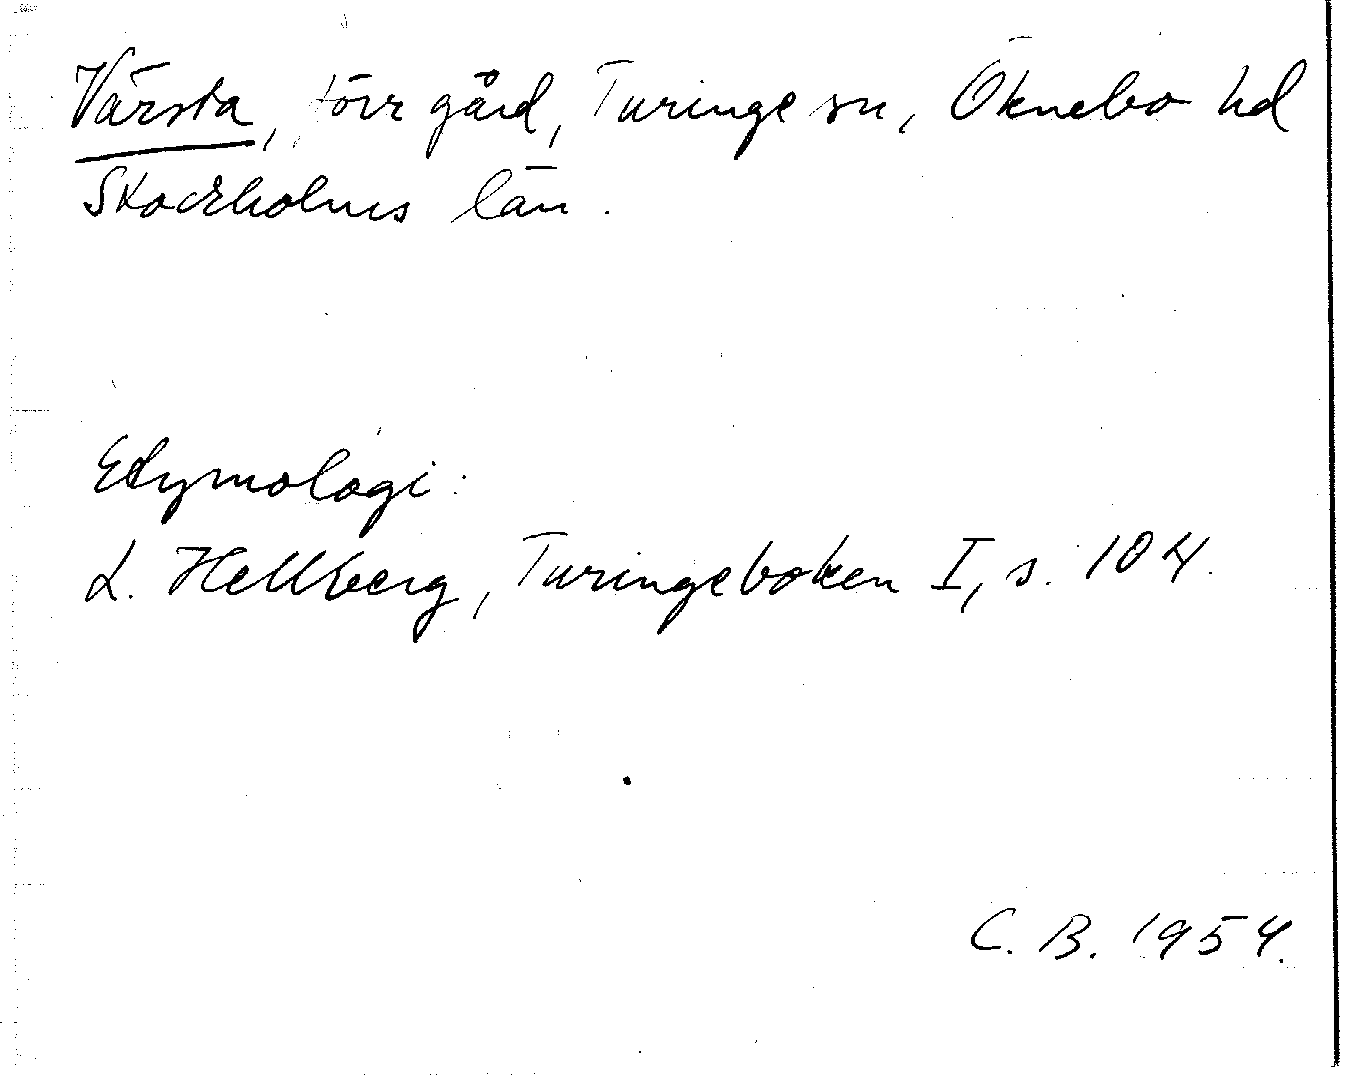 Värsta, förr gård, Turinge sn, Öknebo hd
Stockholms län.
Etymologi:
L. Hellberg, Turingeboken I, s. 104.
C. B. 1954.